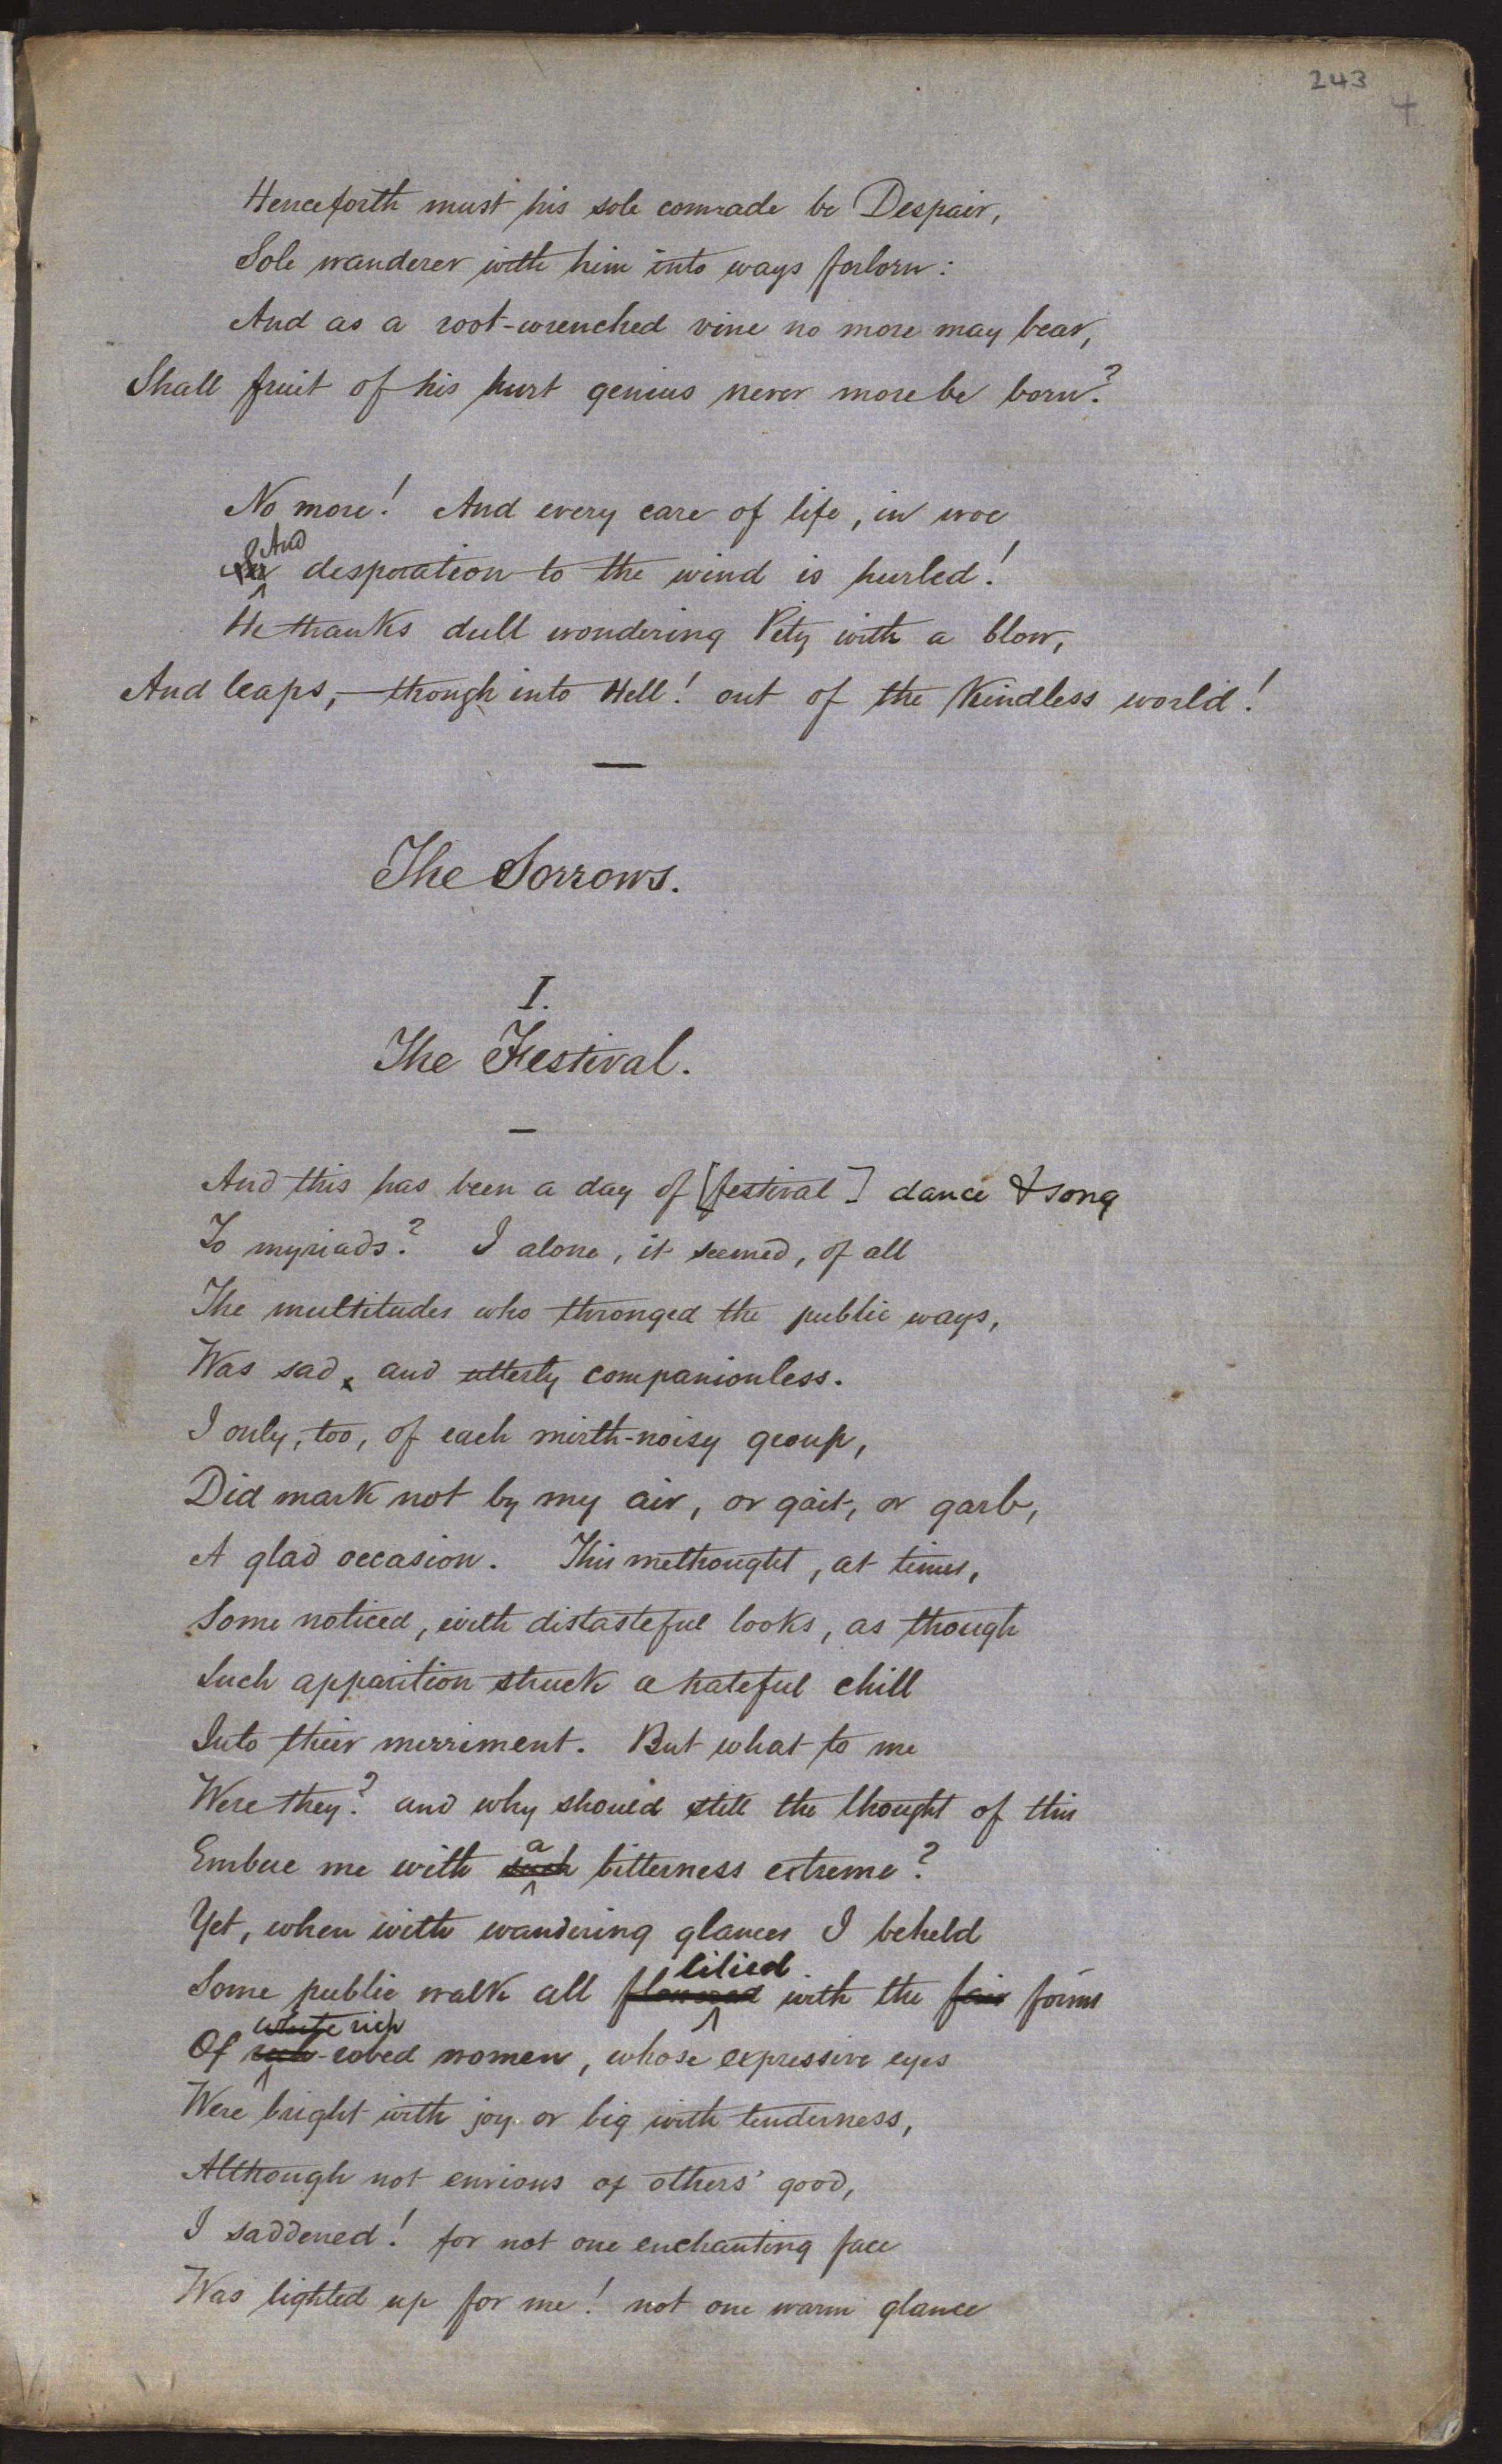 243
4
Henceforth must his sole comrade be Despair,
Sole wanderer with him into ways forlorn:
And as a root-wrenched vine no more may bear,
Shall fruit of his hurt genius never more be born?
No more! And every care of life, in woe
And
desperation to the wind is hurled!
He thanks dull wondering Pity with a blow,
And leaps,—though into Hell! out of the Kindless world!
The Sorrows.
I.
The Festival.
And this has been a day of [festival] dance & song
To myriads? I alone, it seemed, of all
The multitudes who thronged the public ways,
Was sad, and utterly companionless.
I only, too, of each mirth-noisy group,
Did mark not by my air, or gait, or garb,
A glad occasion. This methought, at times,
Some noticed, with distasteful looks, as though
Such apparition struck a hateful chill
Into their merriment. But what to me
Were they? and why should still the thought of this
a
Embue me with such bitterness extreme?
Yet, when with wandering glances I beheld
lilied
Some public walk all flowered with the fair forms
white rich
Of rich-robed women, whose expressive eyes
Were bright with joy or big with tenderness,
Although not envious of others' good,
I saddened! for not one enchanting face
Was lighted up for me! not one warm glance